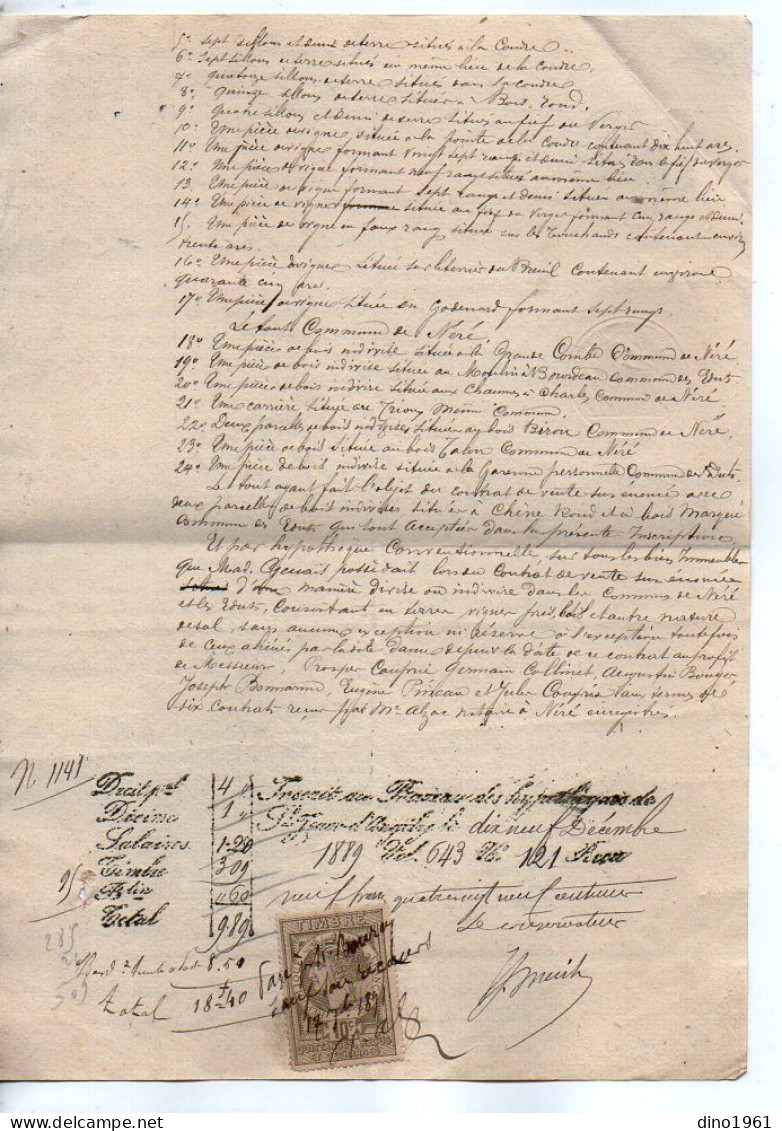 5° Sept sillons et demi de terre situés à la Coudre.
6° Sept sillons de terre situés en même lieu de la Coudre.
7° Quatorze sillons de terre situés dans la Coudre
8° Quinze sillons de terre situés à Bois rond.
9° Quatre sillons et demi de terre situés au fief du Verger
10° Une pièce de vigne, située à la pointe de la Coudre contenant dix huit ares.
11° Une pièce de vigne formant vingt sept rangs et demi située dans le fief du Verger
12° Une pièce de vigne formant neuf rangs située au même lieu
13. Une pièce de vigne formant sept rangs et demi située au même lieu
14° Une pièce de vigne située au fief du Verger formant cinq rangs et demi
15. Une pièce de vigne en faux rang située sur les Touchauds contenant environ
trente ares.
16° Une pièce de vigne située sur le terrier du Breuil contenant environ
quarante cinq ares.
17° Une pièce de vigne située en Godenard formant sept rangs.
Le tout Commune de Néré
18° Une pièce de bois indivise située à la Grande Combe Commune de Néré
19° Une pièce de bois indivise située au Moulin à Bourdeau commune des Eduts
20° Une pièce de bois indivise située aux Chaumes à Charles Commune de Néré
21° Une carrière située au même Commune.
22° Deux parcelles de bois indivises situées au bois Biron Commune de Néré.
23° Une pièce de bois située au bois Talon Commune de Néré
24° Une pièce de bois indivise située à la Garenne personnelle Commune des Eduts.
Le tout ayant fait l'objet du contrat de vente sus énoncé avec
deux parcelles de bois indivises situées à Chêne Rond et au bois Marqué
commune des Eduts qui sont acceptées dans la présente Inscription,
Et par hypothèque Conventionnelle, sur tous les biens Immeubles
que Mad. Genais possédait lors du Contrat de vente sus énoncé
d'une manière divise ou indivise dans les Communes de Néré
et les Eduts, Consistant en terres, vignes, prés, bois et autre nature
de sol, sans aucune exception ni réserve à l'exception toutefois
de ceux aliénés par ladite dame depuis la date de ce contrat au profit
de Messieurs, Prosper Couprie Germain Collinet, Augustin Bouyer
Joseph Bonnarme, Eugène Pineau et Jules Couprie aux termes de
six contrats reçus par Me Alzac notaire à Néré enregistrés.
N 1141
Droit pal 4 "
Décime 1 "
Salaires 1.20
Timbre 3 09
Bin " 60
Total 9.89
Inscrit au Bureau des hypothèques de
St Jean d'Angély le dix neuf Décembre
1889 Vol. 643 No 121 Reçu
neuf francs quatre vingt neuf centimes
Le conservateur
285
309
8.50
total 18f40
TIMBRE
10c
dino1961